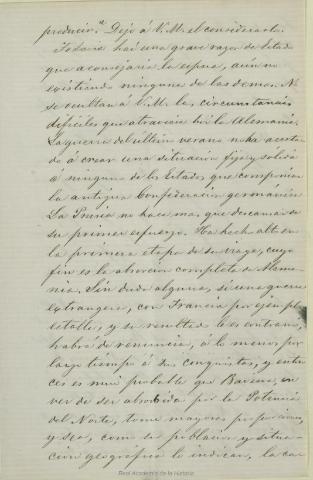 producir.n Dejo á V.M. el considerarlo.
Todavia hai una grave razon de Estado
que aconsejaria la repulsa, aun no
existiendo ninguna de las demas. No
se ocultan á V.M. las circunstancias
dificiles que atraviesa hoi la Alemania.
La guerra del ultimo verano no ha acerta-
do á crear una situacion fija y solida
á ninguno de los Estados que componian
la antigua Confederacion germánica.
La Prusia no hace mas que descansar de
su primer esfuerzo. Ha hecho alto en
la primera etapa de su viage, cuyo
fin es la absorcion completa de Alema-
nia. Sin duda alguna, si una guerra
estrangera, con Francia por ejemplo
estalla, y su resultado le es contrario,
habrá de renunciar, á lo menos por
largo tiempo á sus conquistas, y enton-
ces es mui probable que Baviera, en
vez de ser absorbida por la Potencia
del Norte, tome mayores proporciones,
y sea, como su poblacion y situa-
cion geográfica lo indican, la ca-
Real Academia de la Historia